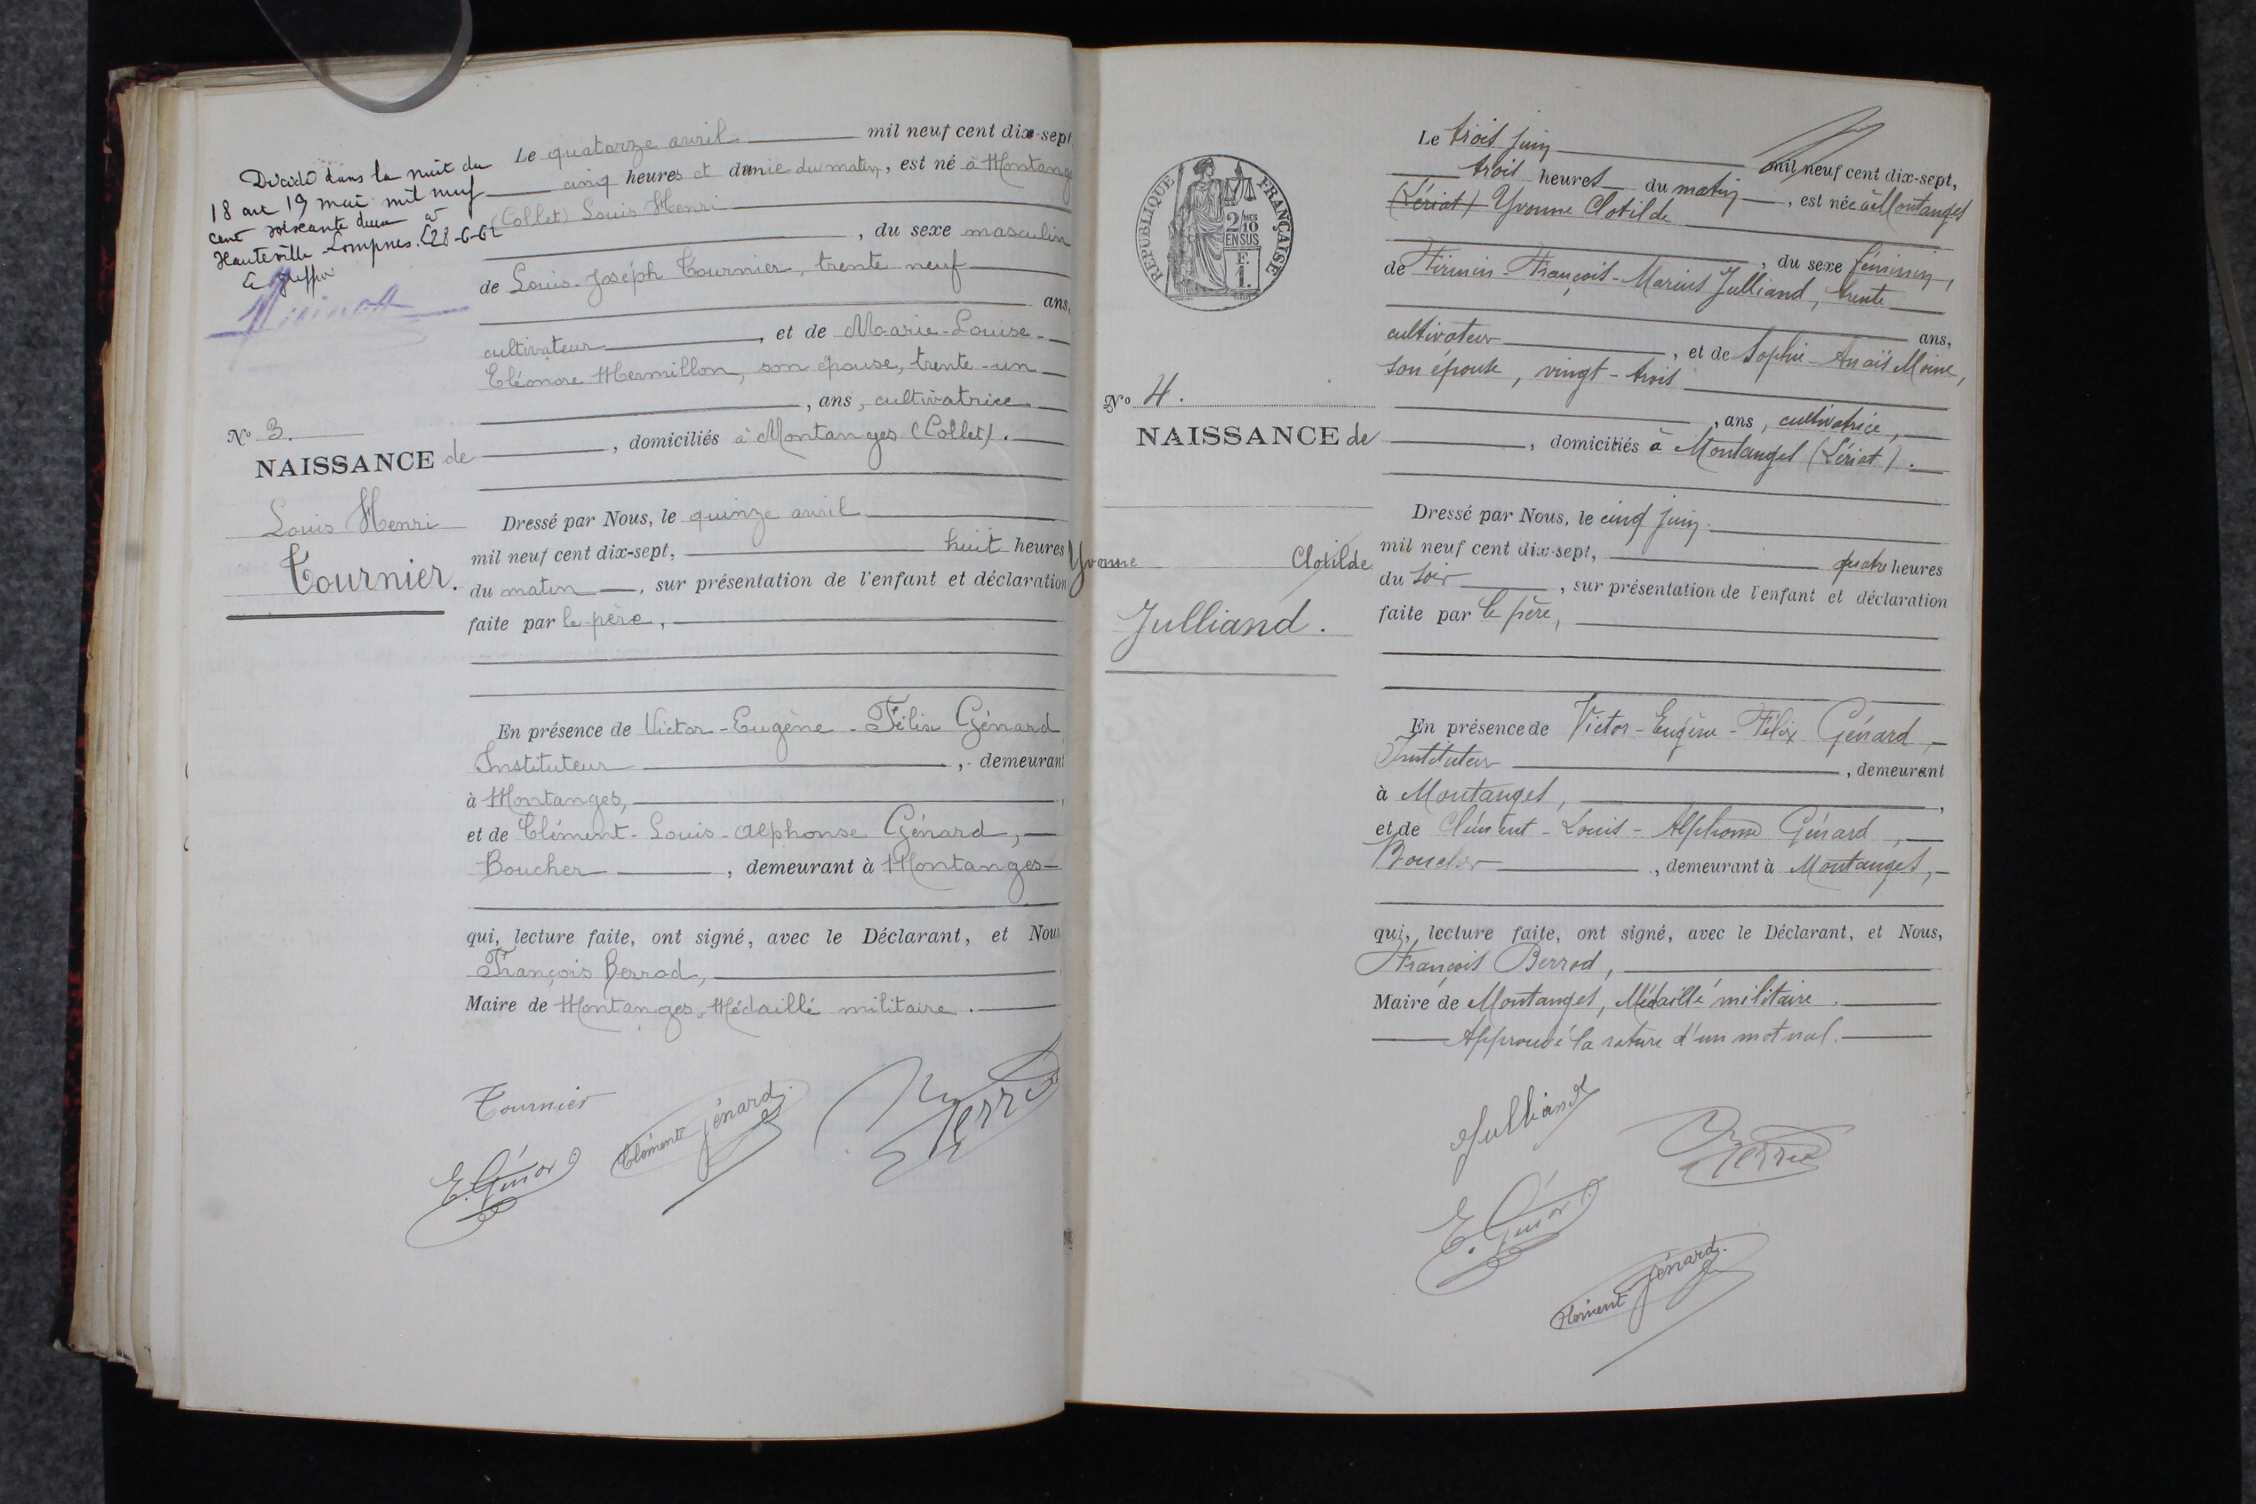 Décédé dans la nuit du
18 au 19 mai mil neuf
cent soixante deux à
Hauteville-Lompnes. 28-6-62
Le Greffier
Nº 3.
NAISSANCE de
Louis Henri
Tournier.
Le quatorze avril mil neuf cent dix-sept
cinq heures et demie du matin, est né à Montang
(Collet) Louis Henri
, du sexe masculin
de Louis-Joseph Tournier, trente neuf
ans,
cultivateur, et de Marie-Louise-
Eléonore Mermillon, son épouse, trente-un
, ans, cultivatrice
, domiciliés à Montanges (Collet).
Dressé par Nous, le quinze avril
mil neuf cent dix-sept, huit heures
du matin, sur présentation de l'enfant et déclaration
faite par le père,
En présence de Victor-Eugène-Félix Génard
Instituteur, demeurant
à Montanges,
et de Clément-Louis-Alphonse Génard,
Boucher, demeurant à Montanges
qui, lecture faite, ont signé, avec le Déclarant, et Nous
François Berrod,
Maire de Montanges, Médaillé militaire.
Tournier
E. Génard
Clément Génard
RÉPUBLIQUE FRANÇAISE
2 10
EN SUS
F.
1.
Nº 4.
NAISSANCE de
Yvonne Clotilde
Julliand.
Le trois juin mil neuf cent dix-sept,
trois heures du matin, est née à Montanges
(Lériat) Yvonne Clotilde
, du sexe féminin,
de Firmin-François-Marius Julliand, trente
ans,
cultivateur, et de Sophie-Anaïs Moine,
son épouse, vingt-trois
, ans, cultivatrice,
, domiciliés à Montanges (Lériat).
Dressé par Nous, le cinq juin.
mil neuf cent dix-sept, quatre heures
du soir, sur présentation de l'enfant et déclaration
faite par le père,
En présence de Victor-Eugène-Félix Génard,
Instituteur, demeurant
à Montanges,
et de Clément-Louis-Alphonse Génard,
Boucher, demeurant à Montanges,
qui, lecture faite, ont signé, avec le Déclarant, et Nous,
François Berrod,
Maire de Montanges, Médaillé militaire.
Approuvé la rature d'un mot nul.
Julliand
E. Génard
Clément Génard.